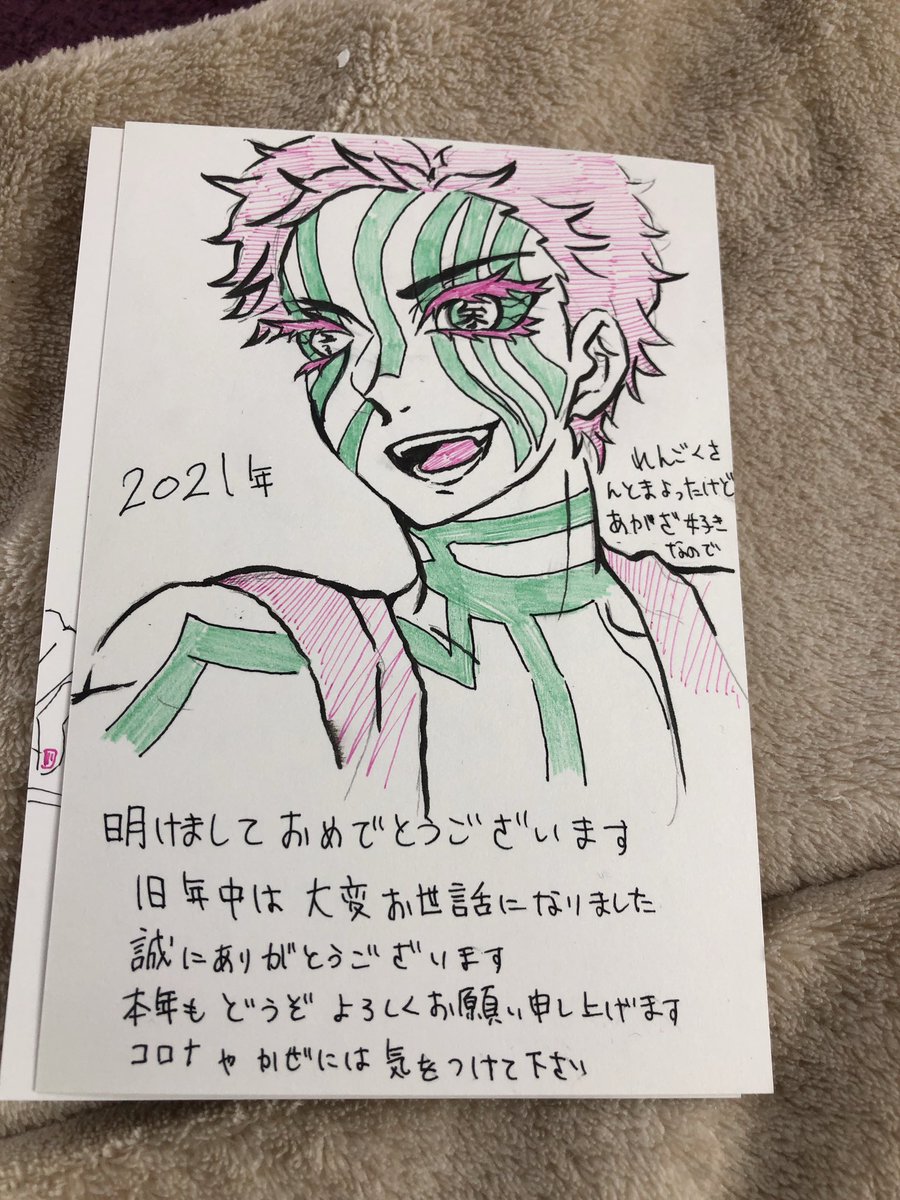 2021年
れんごくさ
んとまよったけど
あかざ好き
なので
明けましておめでとうございます
旧年中は大変お世話になりました
誠にありがとうございます
本年もどうぞよろしくお願い申し上げます
コロナやかぜには気をつけて下さい